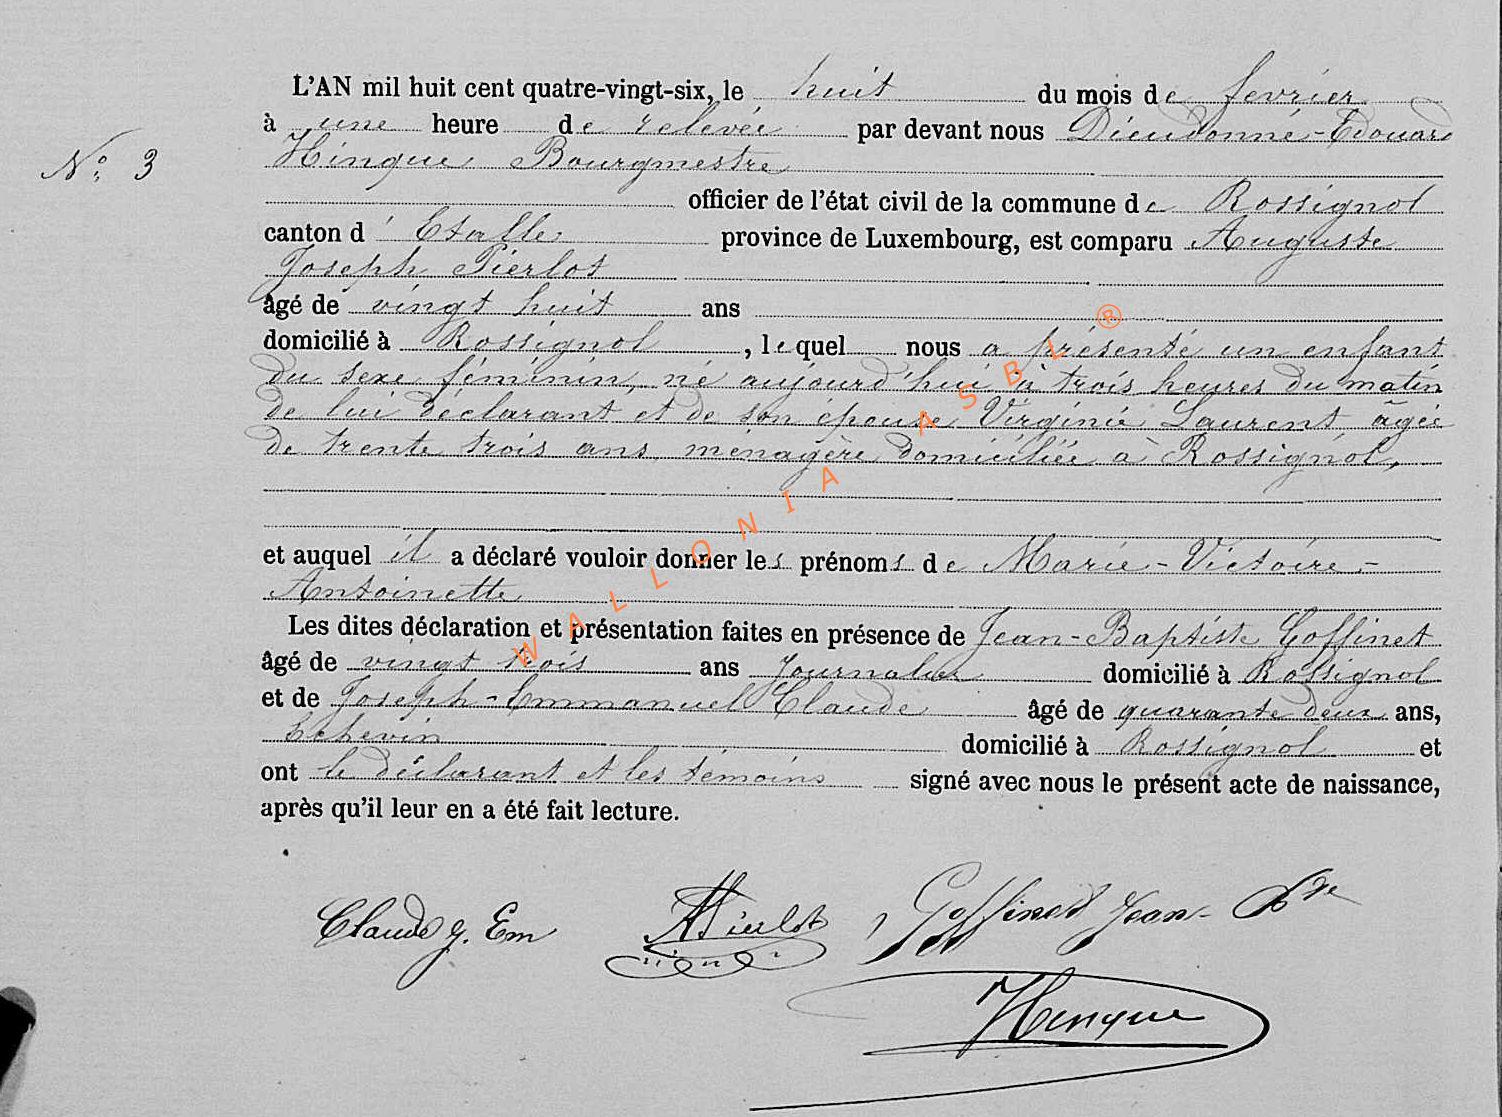 L'AN mil huit cent quatre-vingt-six, le huit du mois de fevrier
à une heure de relevée par devant nous Dieudonné-Edouard
N° 3
Hinque Bourgmestre
officier de l'état civil de la commune de Rossignol
canton d'Etalle province de Luxembourg, est comparu Auguste
Joseph Pierlot
âgé de vingt huit ans
domicilié à Rossignol, lequel nous a présenté un enfant
du sexe féminin, né aujourd'hui à trois heures du matin
de lui déclarant et de son épouse Virginie Laurent âgée
de trente trois ans ménagère domiciliée à Rossignol,
et auquel il a déclaré vouloir donner les prénoms de Marie-Victoire-
Antoinette
Les dites déclaration et présentation faites en présence de Jean-Baptiste Goffinet
âgé de vingt trois ans Journalier domicilié à Rossignol
et de Joseph-Emmanuel Claude âgé de quarante deux ans,
Echevin domicilié à Rossignol et
ont le déclarant et les témoins signé avec nous le présent acte de naissance,
après qu'il leur en a été fait lecture.
Claude J. Em APierlot Goffinet Jean-Bte
Hinque
WALLONIA ASBL ®